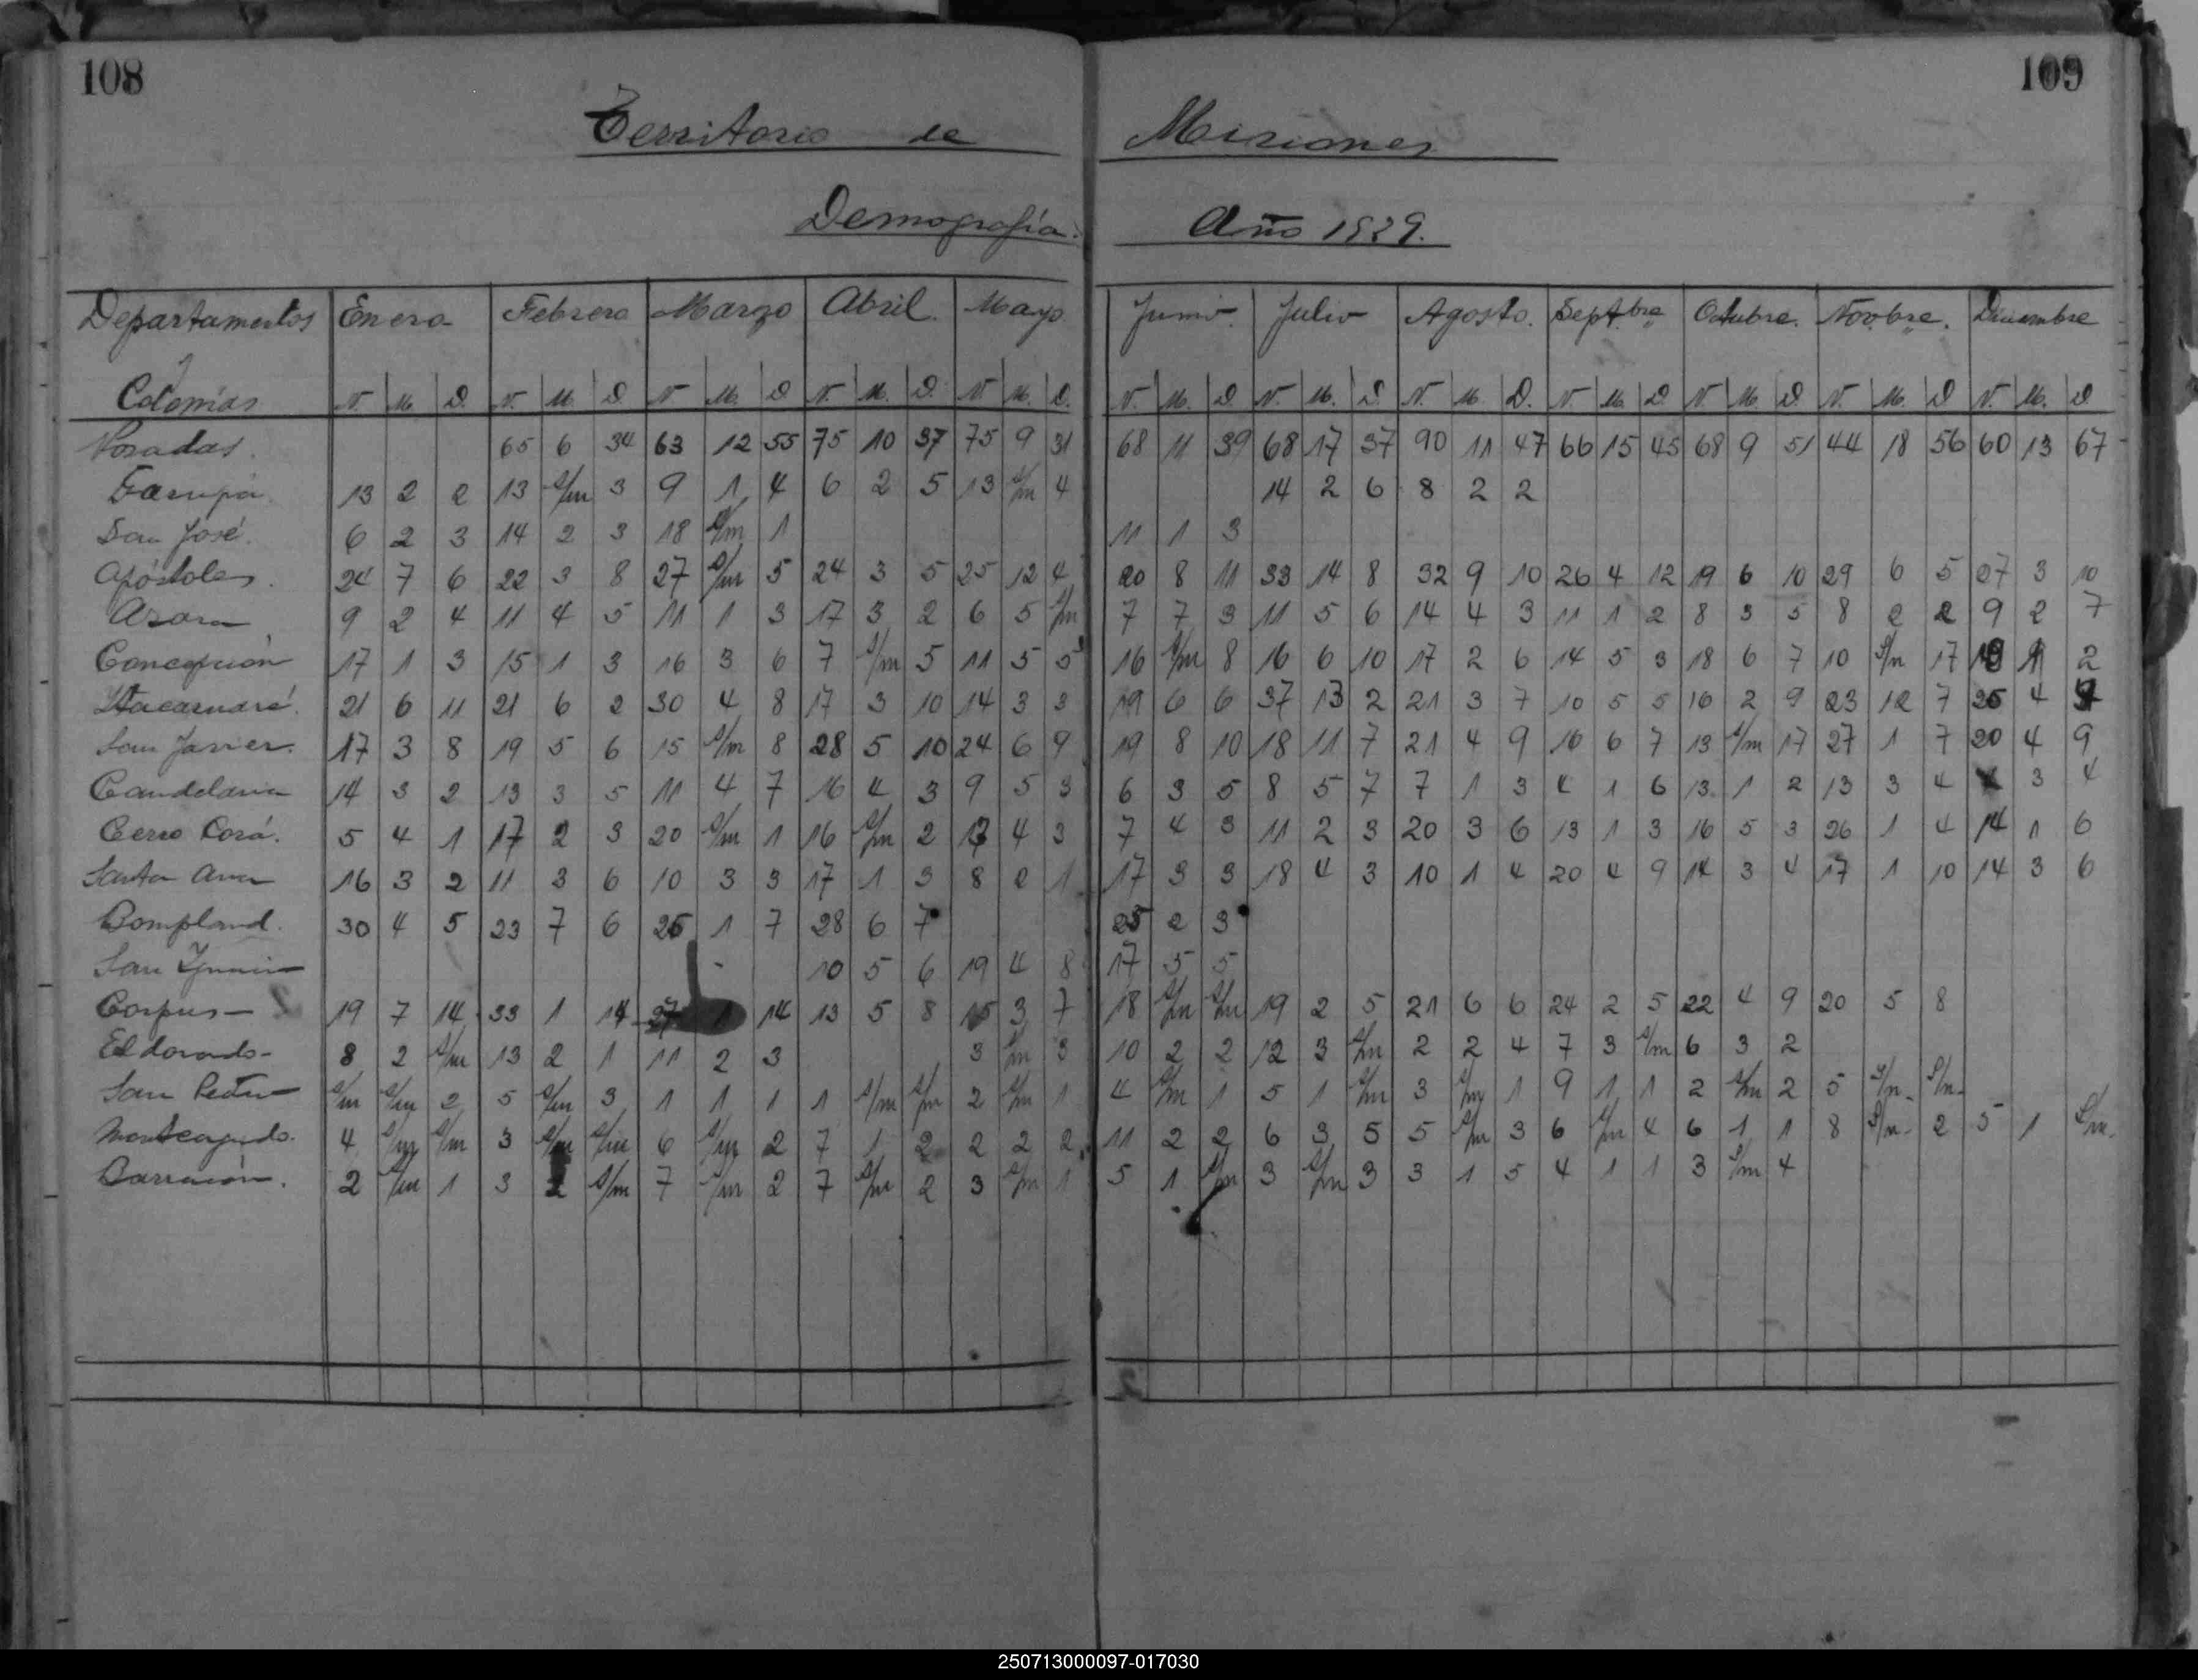 108
109
Territorio de Misiones
Demografía. Año 1929.
Departamentos Enero Febrero Marzo Abril. Mayo Junio. Julio Agosto. Septbre Octubre. Novbre. Diciembre
y
Colonias N. M. D. N. M. D. N M. D N. M. D. N. M. D. N. M. D N. M. D. N. M. D. N. M. D N M. D. N. M. D N. M. D
Posadas. 65 6 34 63 12 55 75 10 37 75 9 31 68 11 39 68 17 37 90 11 47 66 15 45 68 9 51 44 18 56 60 13 67
Garupá 13 2 2 13 S/m 3 9 1 4 6 2 5 13 S/m 4 14 2 6 8 2 2
San José. 6 2 3 14 2 3 18 S/m 1 11 1 3
Apóstoles. 24 7 6 22 3 8 27 S/m 5 24 3 5 25 12 4 20 8 11 33 14 8 32 9 10 26 4 12 19 6 10 29 6 5 27 3 10
Azara 9 2 4 11 4 5 11 1 3 17 3 2 6 5 S/m 7 7 3 11 5 6 14 4 3 11 1 2 8 3 5 8 2 2 9 2 7
Concepción 17 1 3 15 1 3 16 3 6 7 S/m 5 11 5 5 16 S/m 8 16 6 10 17 2 6 14 5 3 18 6 7 10 S/n 17 2
Itacaruaré. 21 6 11 21 6 2 30 4 8 17 3 10 14 3 3 19 6 6 37 13 2 21 3 7 10 5 5 16 2 9 23 12 7 26 4
San Javier. 17 3 8 19 5 6 15 S/m 8 28 5 10 24 6 9 19 8 10 18 11 7 21 4 9 16 6 7 13 S/m 17 27 1 7 20 4 9
Candelaria 14 3 2 13 3 5 11 4 7 16 4 3 9 5 3 6 3 5 8 5 7 7 1 3 4 1 6 13. 1 2 13 3 4 3 4
Cerro Corá. 5 4 1 17 2 3 20 S/m 1 16 S/m 2 4 3 7 4 3 11 2 3 20 3 6 13 1 3 16 5 3 26 1 4 14 1 6
Santa Ana 16 3 2 11 3 6 10 3 3 17 1 3 8 2 1 17 3 3 18 4 3 10 1 4 20 4 9 14 3 4 17 1 10 14 3 6
Bompland. 30 4 5 23 7 6 26 1 7 28 6 7 25 2 3
San Ignacio - 10 5 6 19 4 8 17 5 5
Corpus - 19 7 14 33 1 14 27 1 14 13 5 8 15 3 7 18 S/m S/m 19 2 5 21 6 6 24 2 5 22 4 9 20 5 8
Eldorado - 8 2 S/m 13 2 1 11 2 3 3 S/m 3 10 2 2 12 3 S/m 2 2 4 7 3 S/m 6 3 2
San Pedro S/m S/m 2 5 S/m 3 1 1 1 1 S/m S/m 2 S/m 1 4 S/m 1 5 1 S/m 3 S/m 1 9 1 1 2 S/m 2 5 S/n. S/n.
Monteagudo. 4 S/m S/m 3 S/m S/m 6 S/m 2 7 1 2 2 2 2 11 2 2 6 3 5 5 S/m 3 6 S/m 4 6 1 1 8 S/n. 2 5 1 S/m.
Barracón. 2 S/m 1 3 2 S/m 7 S/m 2 7 S/m 2 3 S/m 1 5 1 S/m 3 S/m 3 3 1 5 4 1 1 3 S/m 4
250713000097-017030